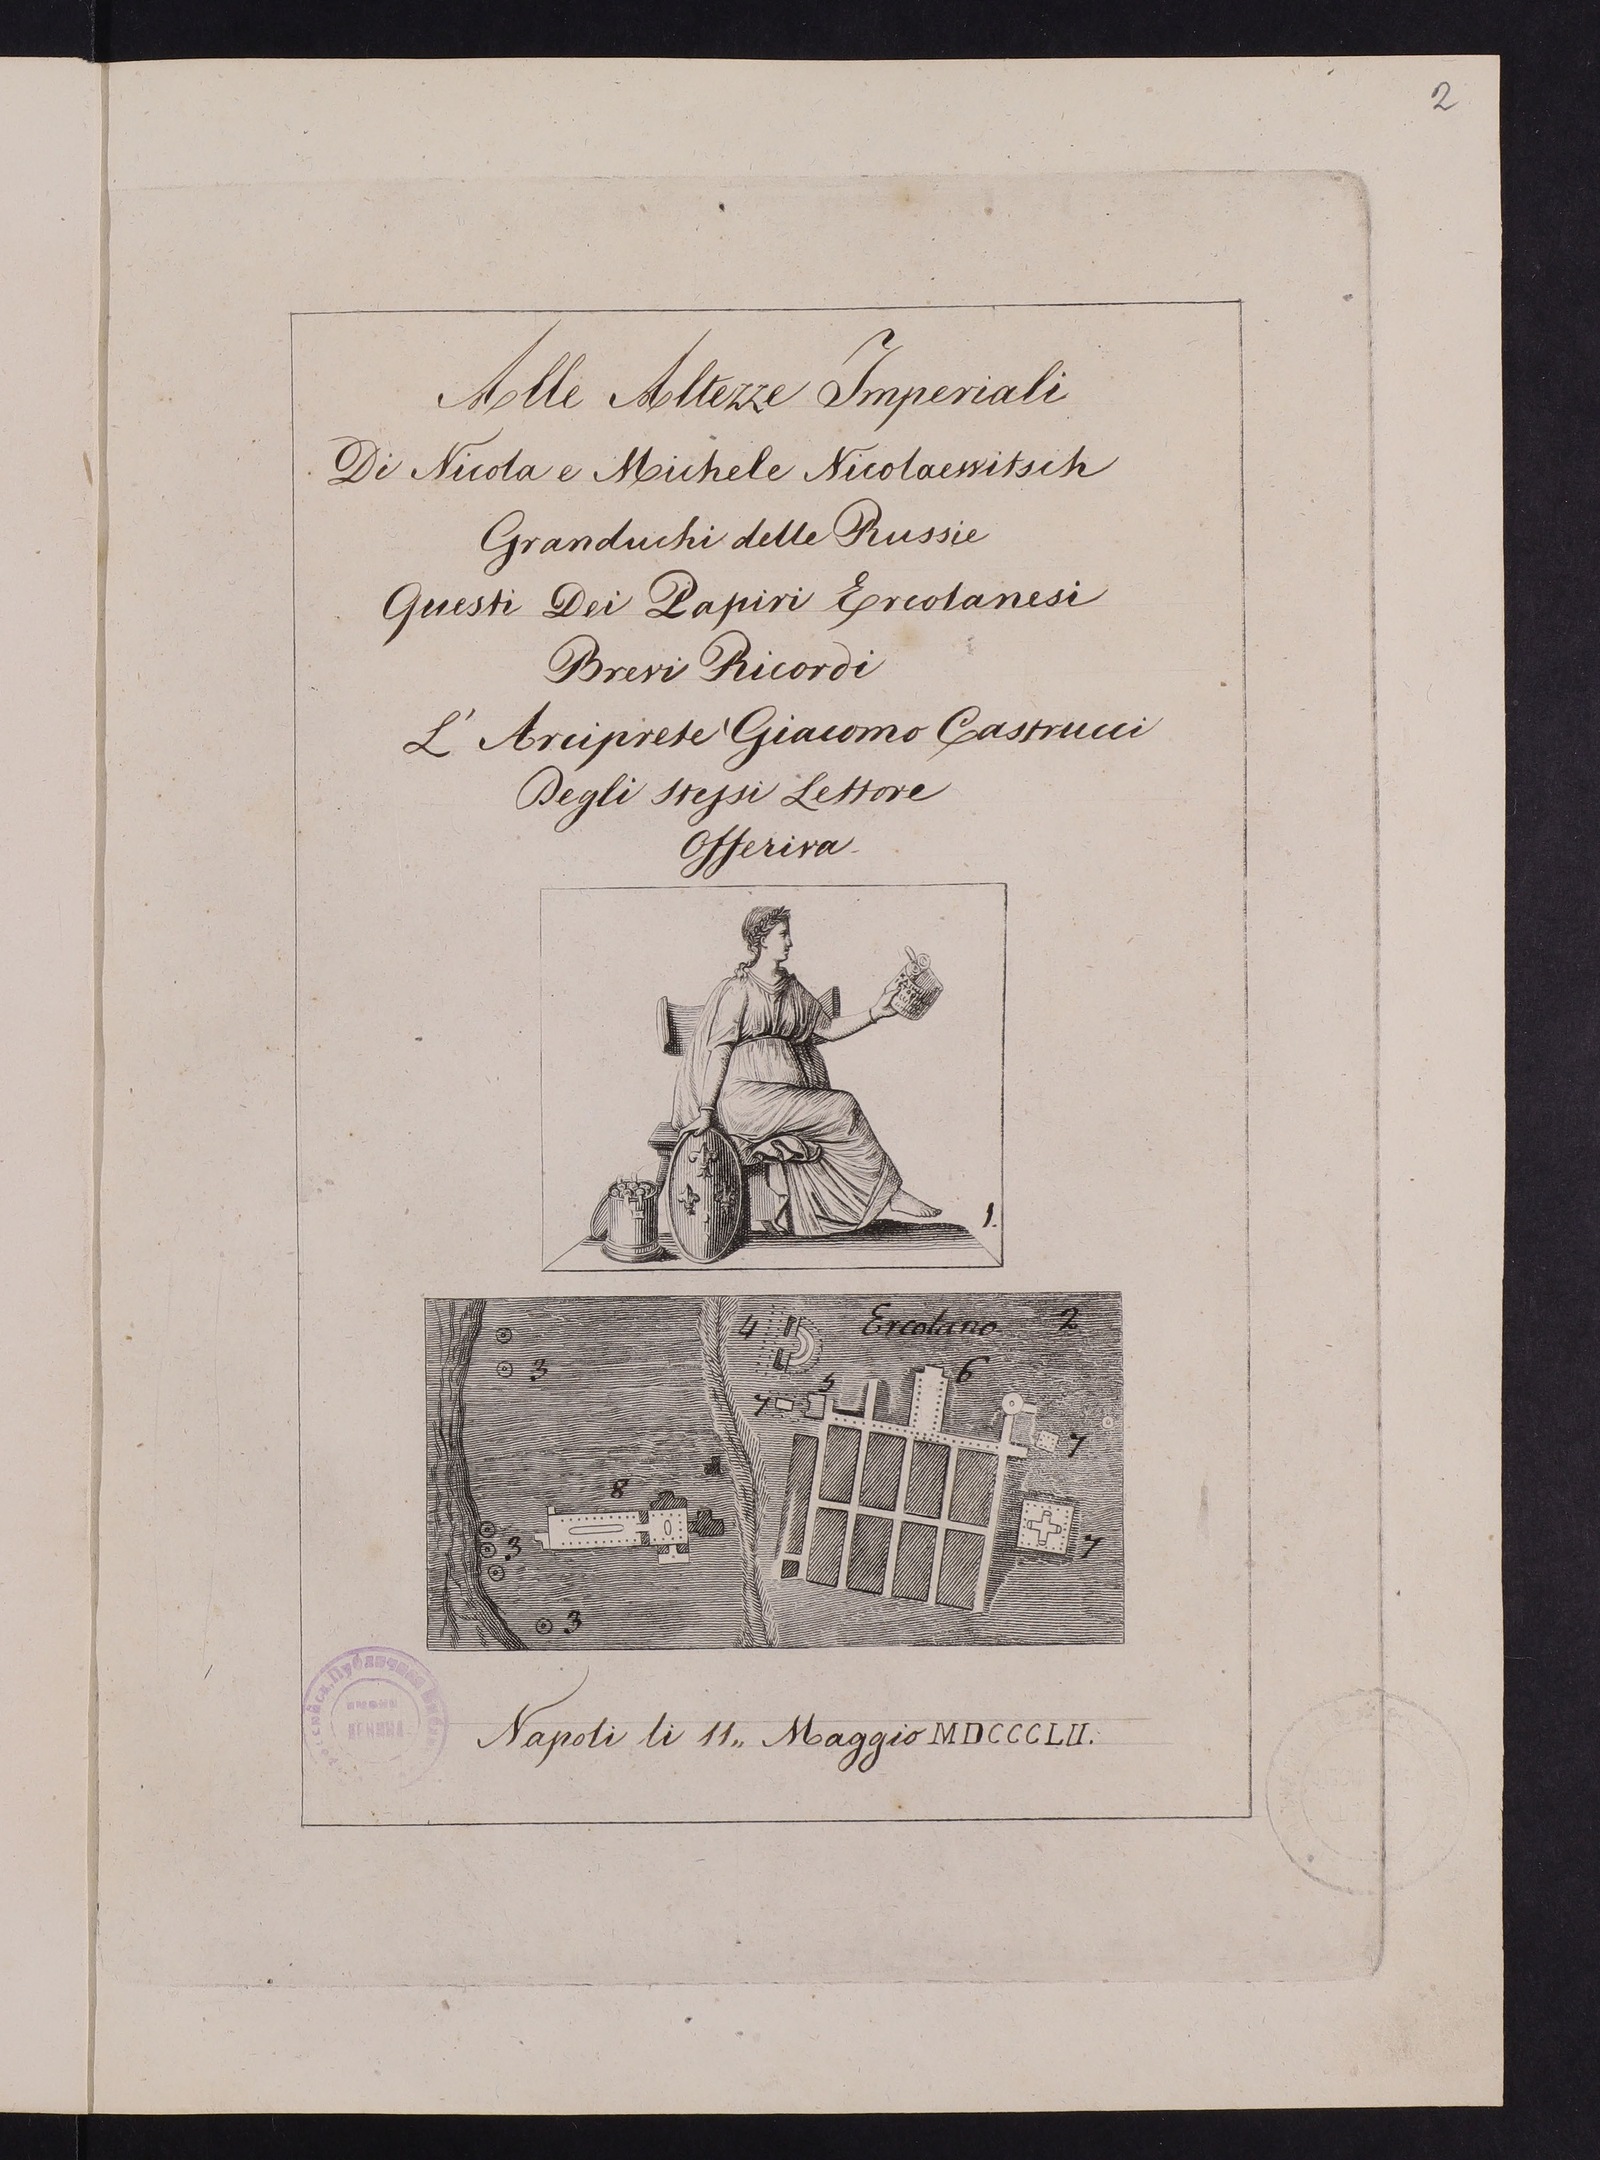 2
Alle Altezze Imperiali
Di Nicola e Michele Nicolaewitsch
Granduchi delle Russie
Questi Dei Papiri Ercolanesi
Brevi Ricordi
L' Arciprete Giacomo Castrucci
Degli stessi Lettore
Offeriva
1.
4 Ercolano 2
3
5 6
7
7
8
3
7
3
Публичная
имени
ЛЕНИНА
Napoli li 11,, Maggio MDCCCLII.